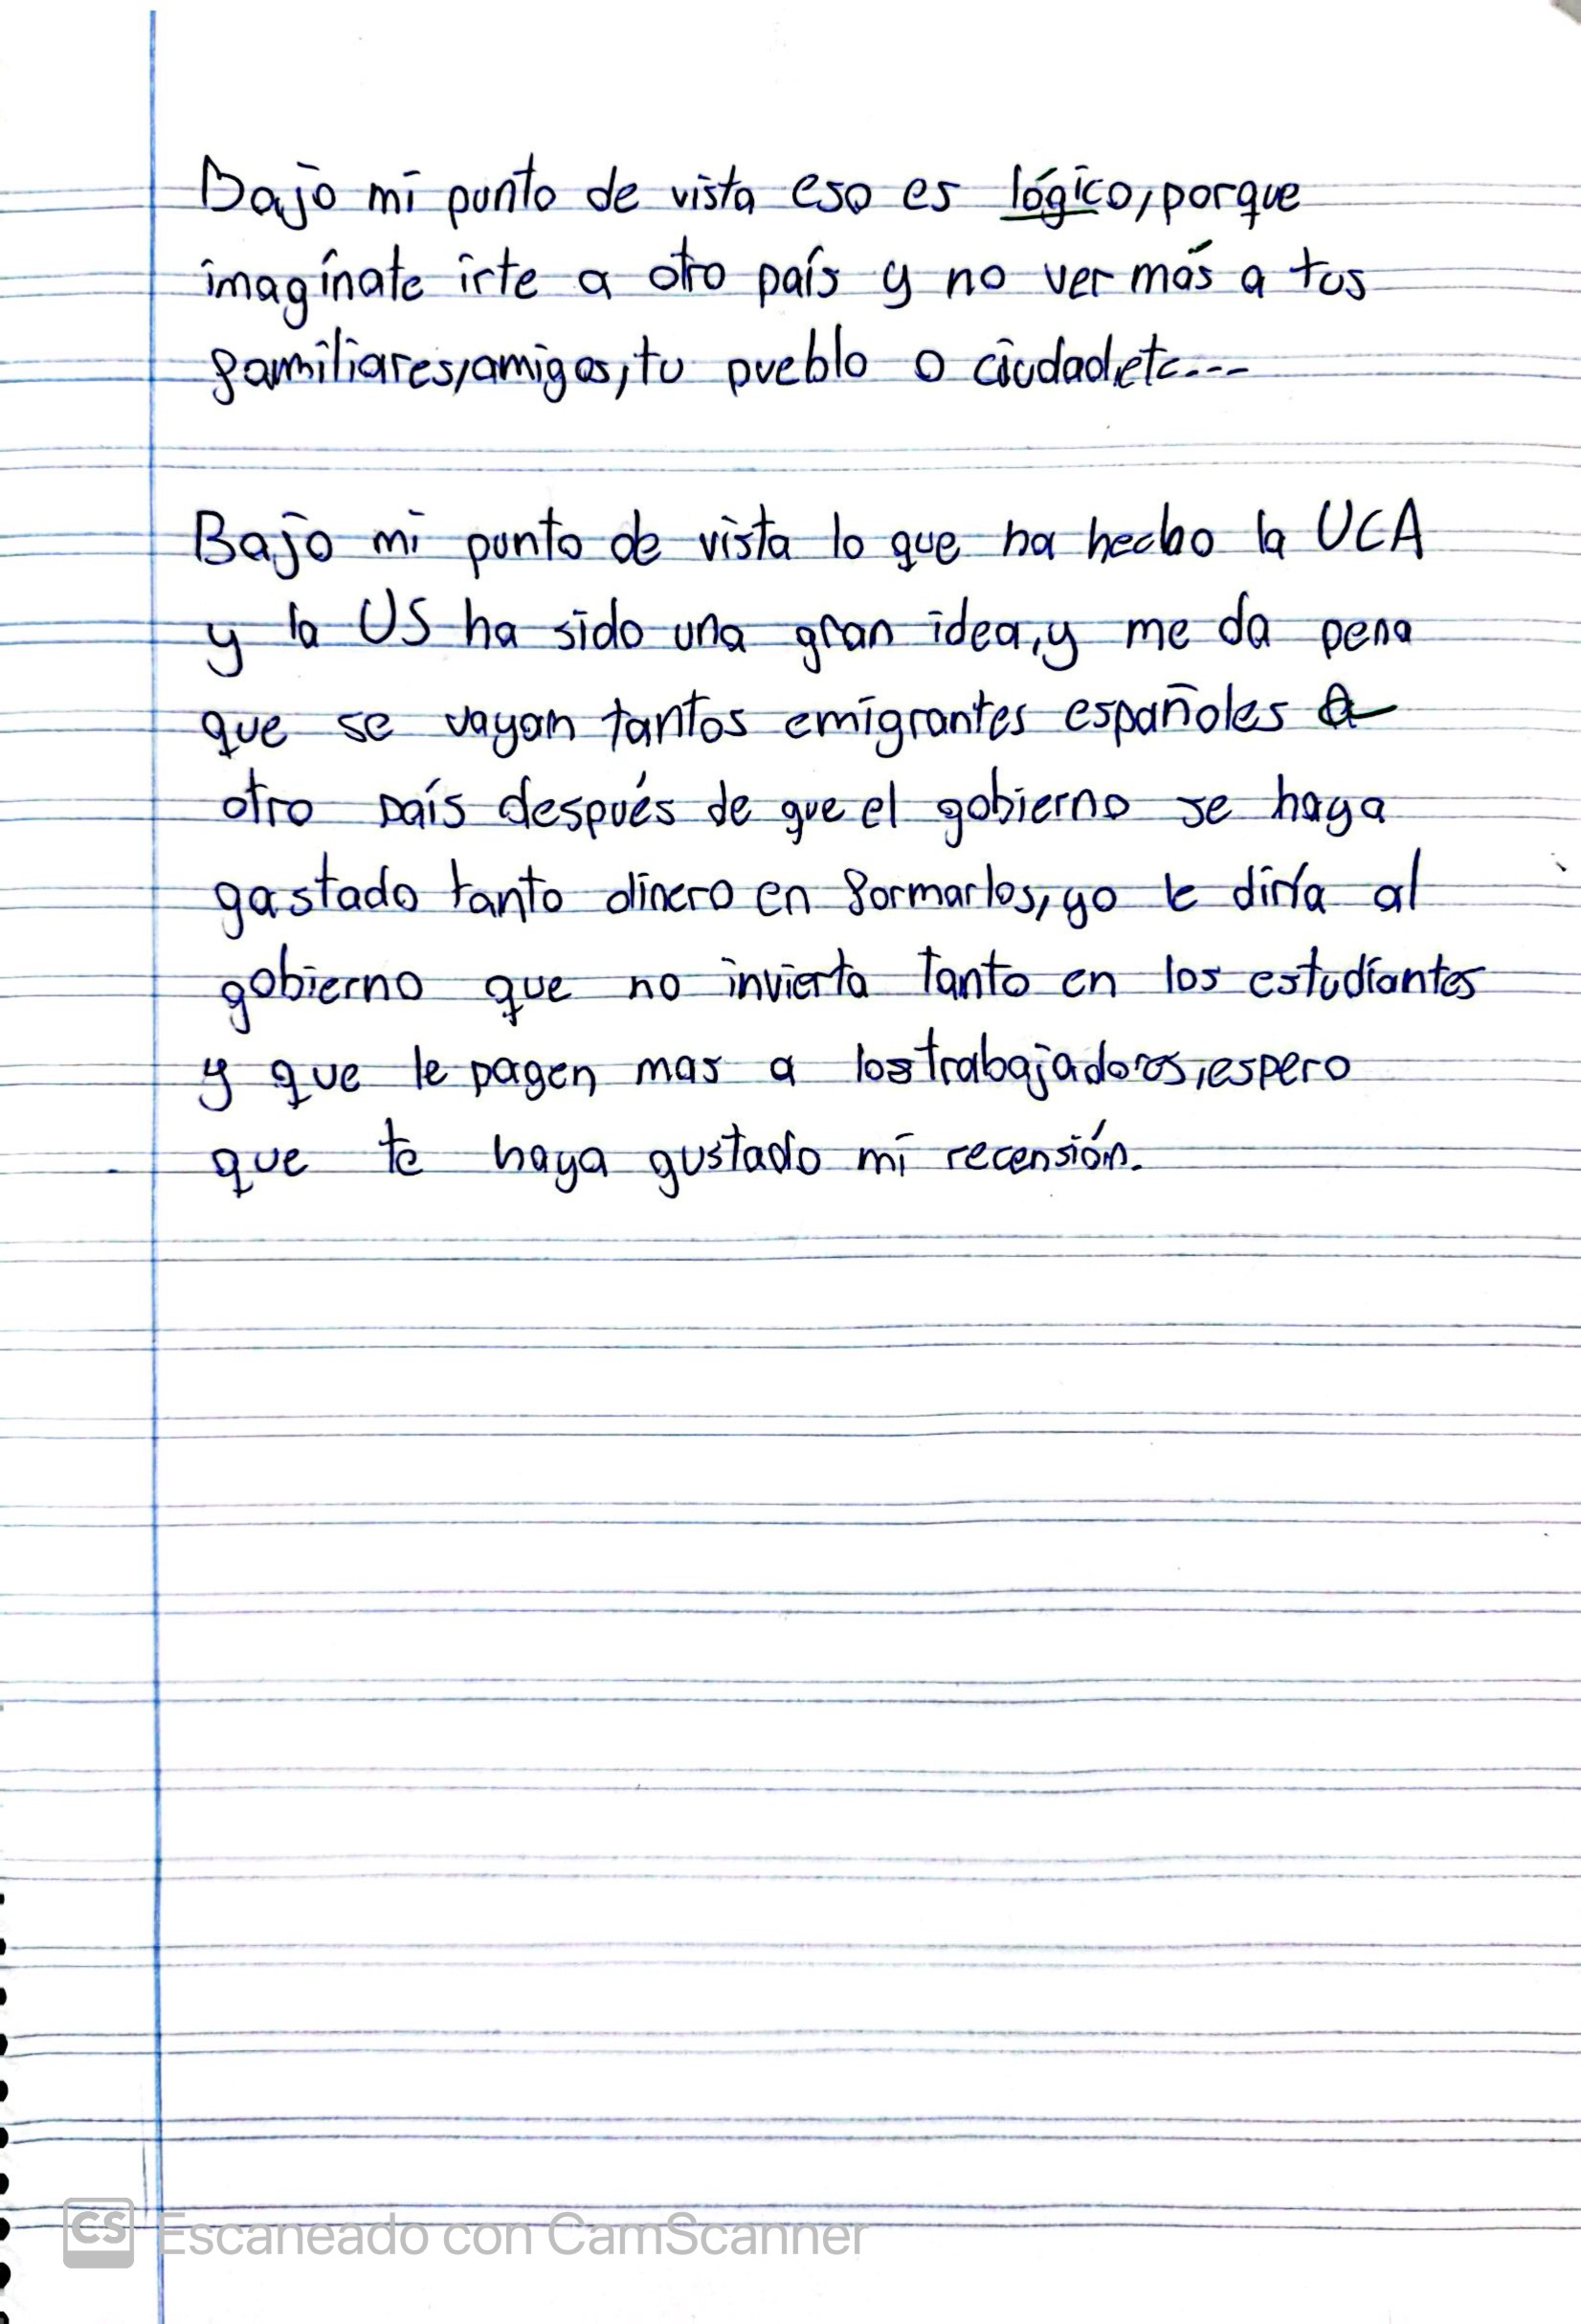 Bajo mi punto de vista eso es lógico, porque
imagínate irte a otro país y no ver más a tus
familiares, amigos, tu pueblo o ciudad, etc...
Bajo mi punto de vista lo que ha hecho la UCA
y la US ha sido una gran idea, y me da pena
que se vayan tantos emigrantes españoles a
otro país después de que el gobierno se haya
gastado tanto dinero en formarlos, yo le diría al
gobierno que no invierta tanto en los estudiantes
y que le pagen mas a los trabajadores, espero
que te haya gustado mi recensión.
CS Escaneado con CamScanner